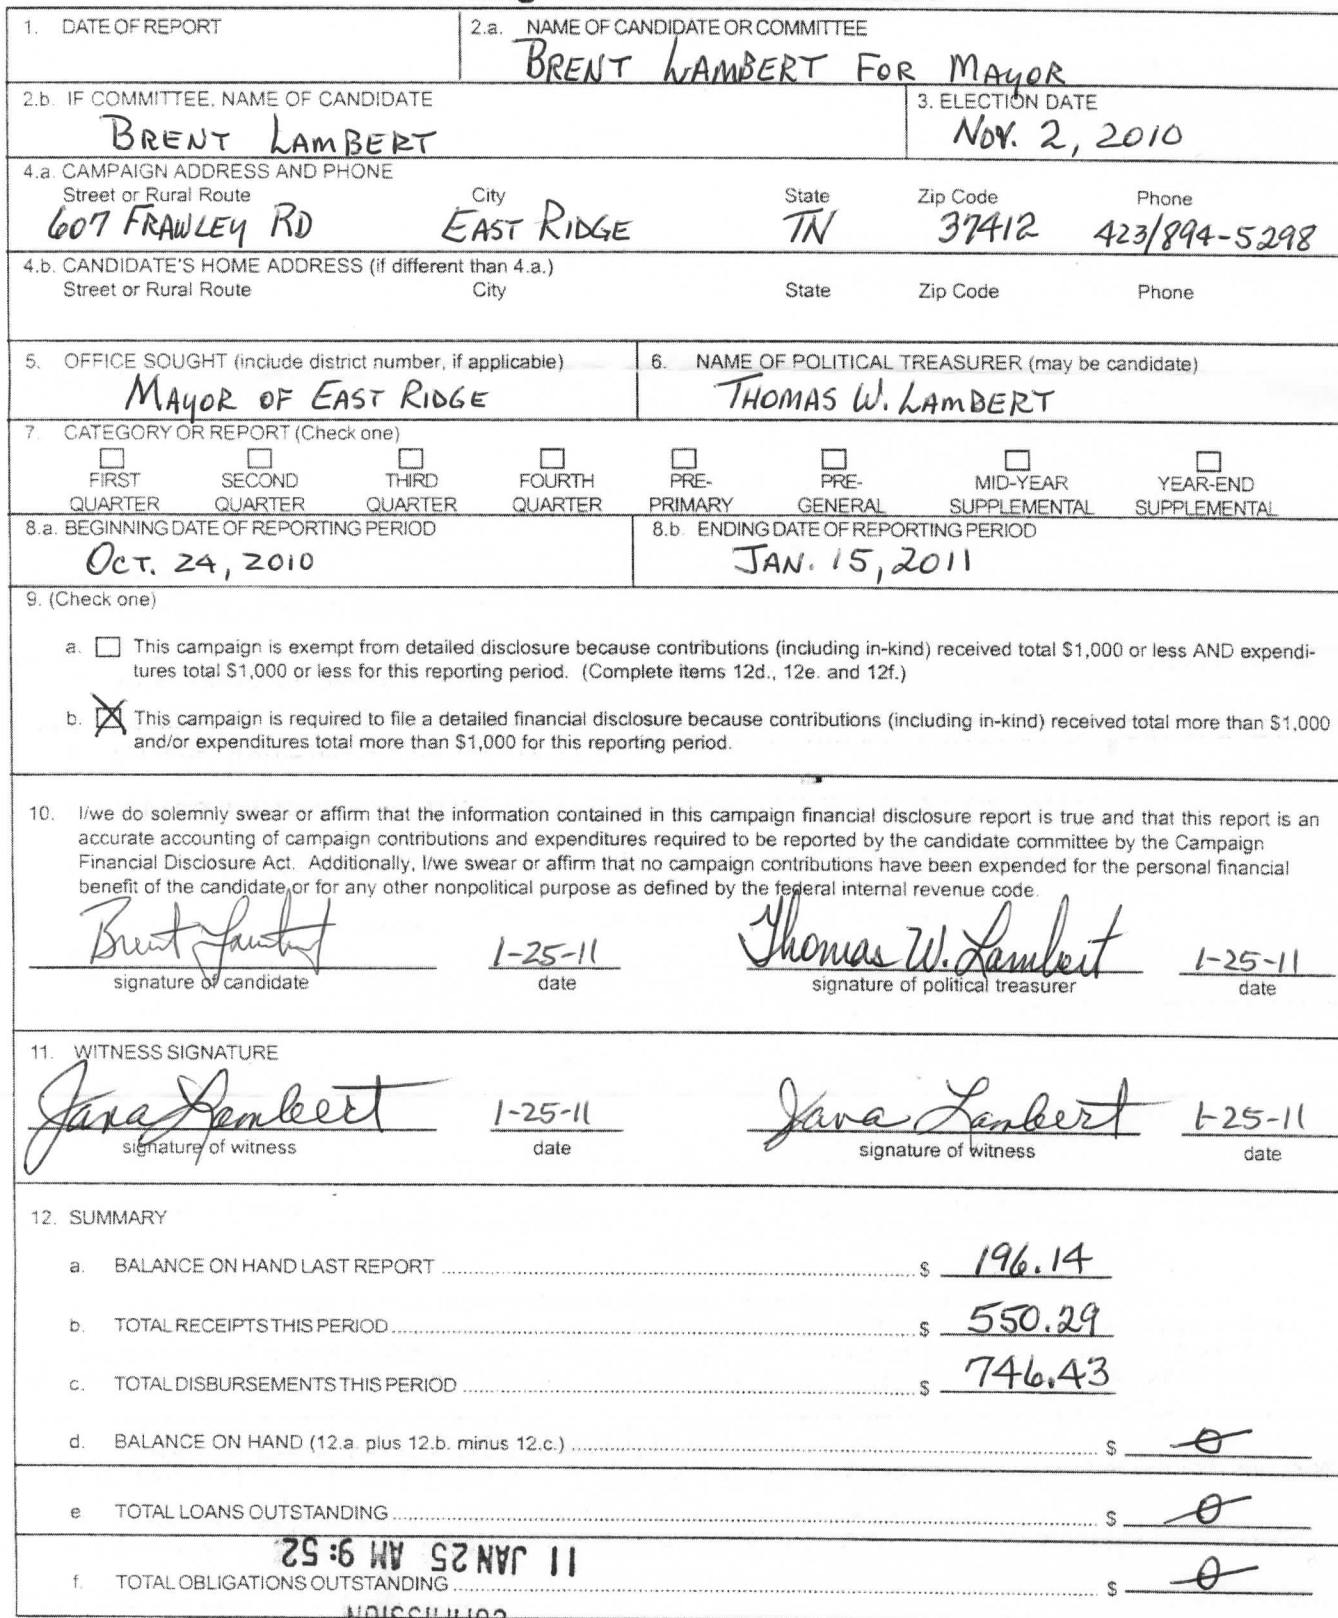 1. DATE OF REPORT
2.a. NAME OF CANDIDATE OR COMMITTEE
BRENT LAMBERT FOR MAYOR
2.b. IF COMMITTEE, NAME OF CANDIDATE
BRENT LAMBERT
3. ELECTION DATE
NOV. 2, 2010
4.a. CAMPAIGN ADDRESS AND PHONE
Street or Rural Route City State Zip Code Phone
607 FRAWLEY RD EAST RIDGE TN 37412 423/894-5298
4.b. CANDIDATE'S HOME ADDRESS (if different than 4.a.)
Street or Rural Route City State Zip Code Phone
5. OFFICE SOUGHT (include district number, if applicable)
MAYOR OF EAST RIDGE
6. NAME OF POLITICAL TREASURER (may be candidate)
THOMAS W. LAMBERT
7. CATEGORY OR REPORT (Check one)
FIRST QUARTER
SECOND QUARTER
THIRD QUARTER
FOURTH QUARTER
PRE-PRIMARY
PRE-GENERAL
MID-YEAR SUPPLEMENTAL
YEAR-END SUPPLEMENTAL
8.a. BEGINNING DATE OF REPORTING PERIOD
OCT. 24, 2010
8.b. ENDING DATE OF REPORTING PERIOD
JAN. 15, 2011
9. (Check one)
a. This campaign is exempt from detailed disclosure because contributions (including in-kind) received total $1,000 or less AND expendi-
tures total $1,000 or less for this reporting period. (Complete items 12d., 12e. and 12f.)
b. This campaign is required to file a detailed financial disclosure because contributions (including in-kind) received total more than $1,000
and/or expenditures total more than $1,000 for this reporting period.
10. I/we do solemnly swear or affirm that the information contained in this campaign financial disclosure report is true and that this report is an
accurate accounting of campaign contributions and expenditures required to be reported by the candidate committee by the Campaign
Financial Disclosure Act. Additionally, I/we swear or affirm that no campaign contributions have been expended for the personal financial
benefit of the candidate or for any other nonpolitical purpose as defined by the federal internal revenue code.
Brent Lambert 1-25-11 Thomas W. Lambert 1-25-11
signature of candidate date signature of political treasurer date
11. WITNESS SIGNATURE
Jana Lambert 1-25-11 Jana Lambert 1-25-11
signature of witness date signature of witness date
12. SUMMARY
a. BALANCE ON HAND LAST REPORT $ 196.14
b. TOTAL RECEIPTS THIS PERIOD $ 550.29
c. TOTAL DISBURSEMENTS THIS PERIOD $ 746.43
d. BALANCE ON HAND (12.a. plus 12.b. minus 12.c.) $ 0
e TOTAL LOANS OUTSTANDING $ 0
11 JAN 25 AM 9:52
f. TOTAL OBLIGATIONS OUTSTANDING $ 0
COMMISSION